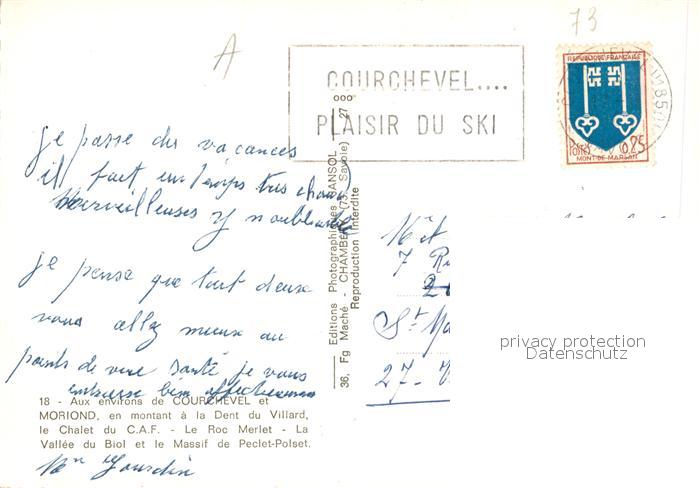 73
A
COURCHEVEL....
PLAISIR DU SKI
REPUBLIQUE FRANÇAISE
POSTES 0,25
MONT-DE-MARSAN
je passe des vacances
il fait un temps très
merveilleuses
je pense que tout deux
vous allez mieux au
points de vue santé je vous
embrasse bien affectueusement
Mn Jourdin
18 - Aux environs de COURCHEVEL et
MORIOND, en montant à la Dent du Villard,
le Chalet du C.A.F. - Le Roc Merlet - La
Vallée du Biol et le Massif de Peclet-Polset.
Editions Photographiques SANSOL 27
36, Fg Maché - CHAMBERY (73, Savoie)
Reproduction Interdite
7 R
2
St
27 -
privacy protection
Datenschutz